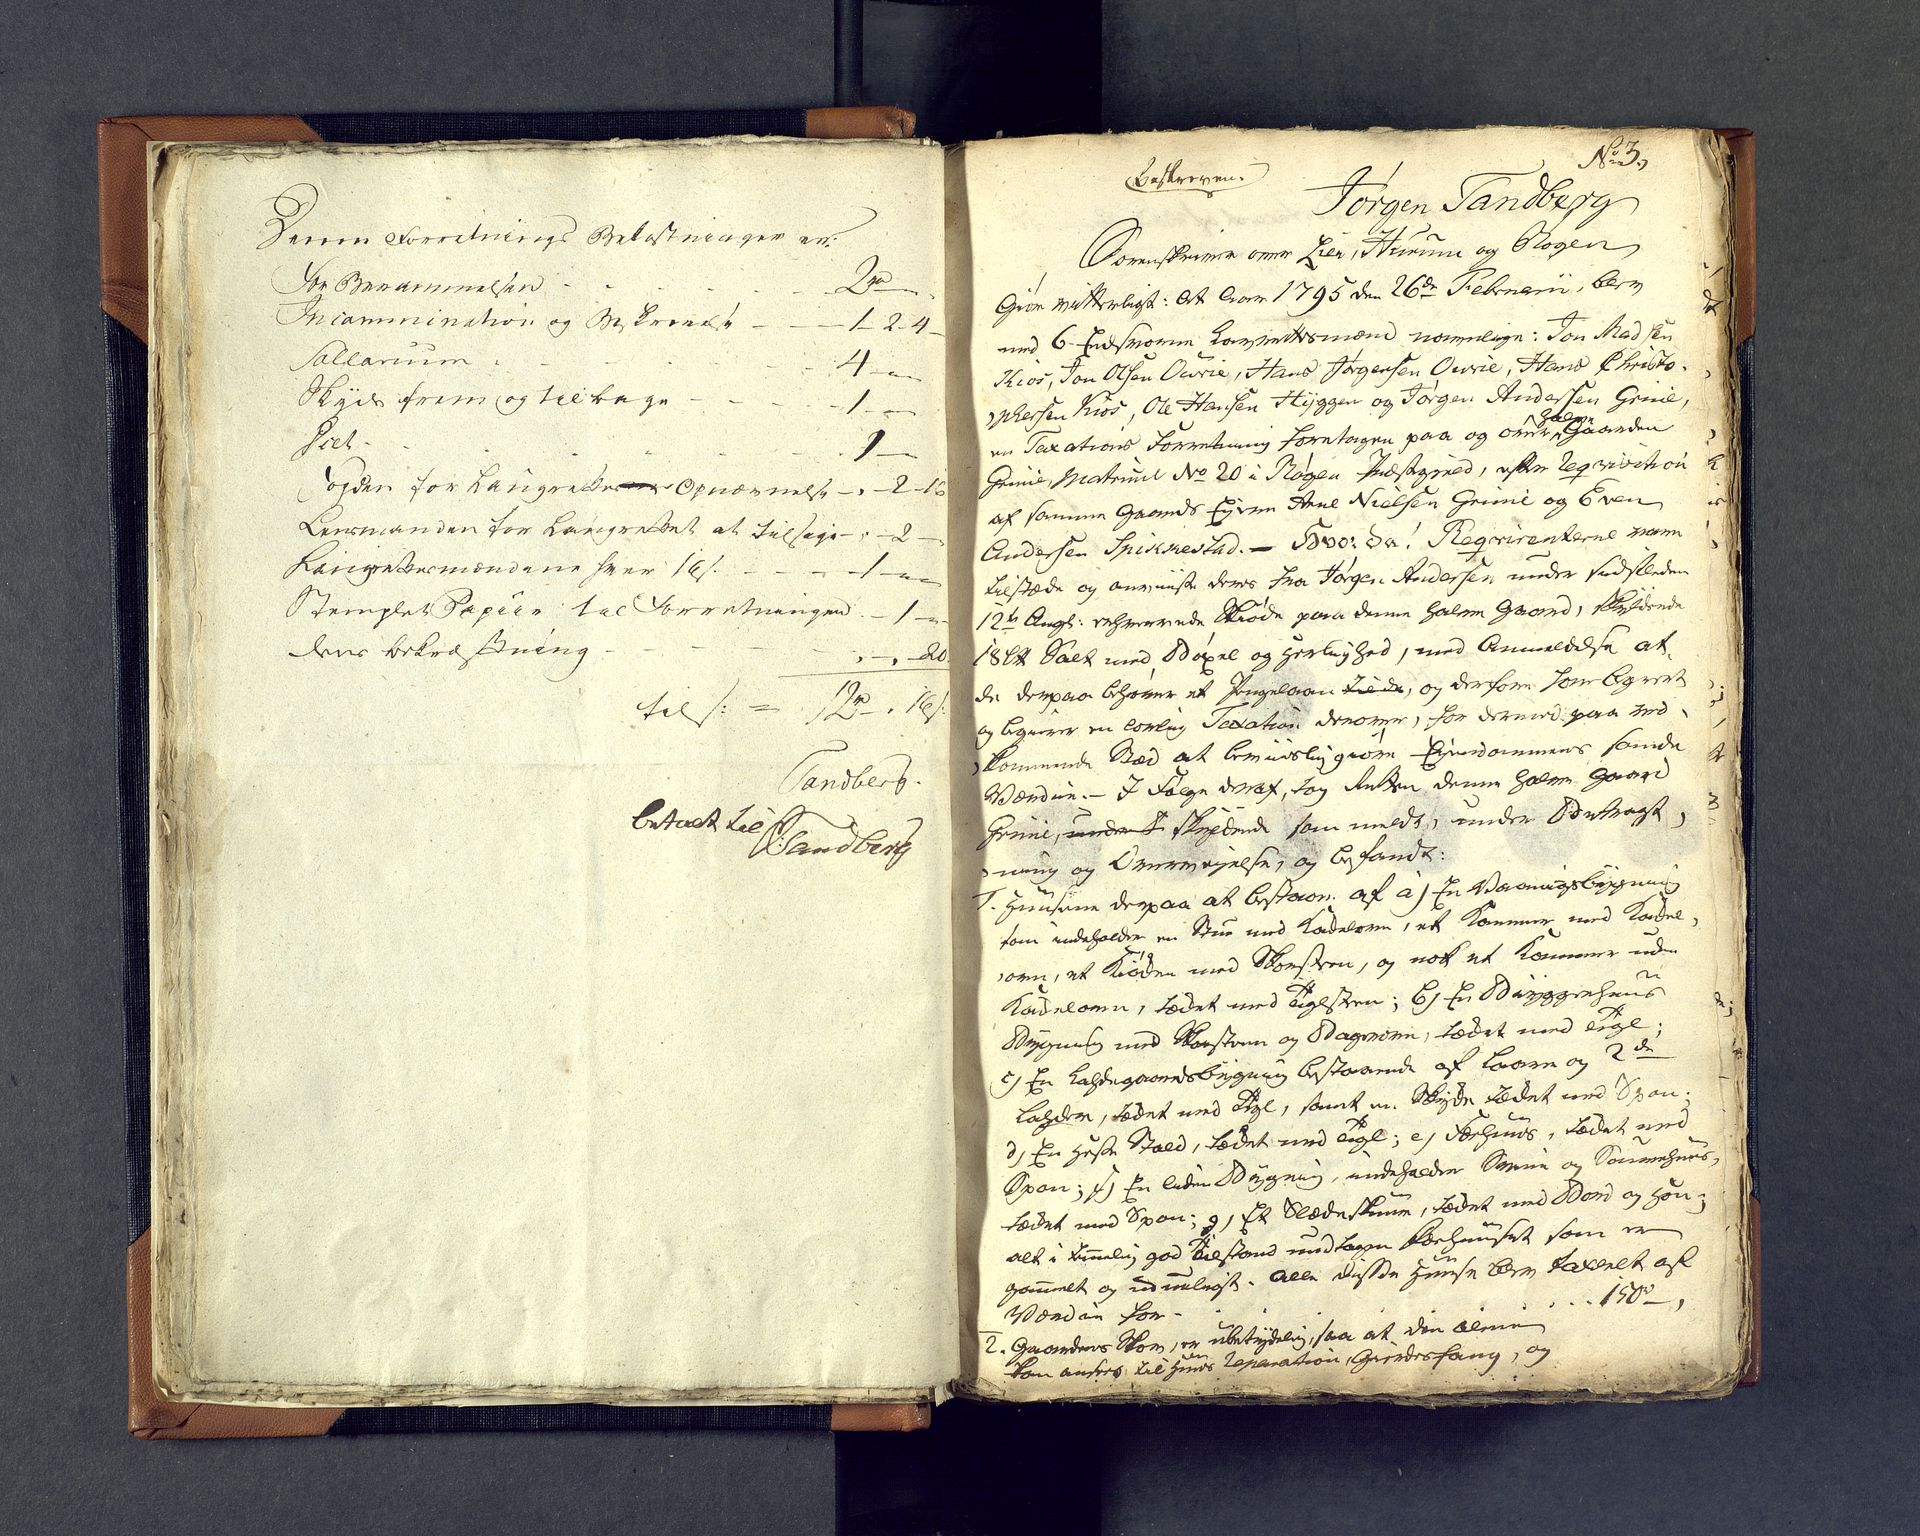 Denne Forretnings Bekostninger er:
For Berammelsen - - - 2rd -
Incammination og Beskrivelse - - - 1 - 2 - 4 -
Sallarium - - - 4 -
Skyds frem og tilbage - - - 1 -
Diet - - - 1 -
Fogden for Laugrettes Opnævnelse - . - 2 - 16
Lensmanden for Laugrettet at tilsige - . - 2 -
Laugrettesmændene hver 16s. - - - 1 -
Stemplet Papiir til Forretningen - 1 -
dens bekræftning - - - . - . - 20
tils: = 12rd . 16s.
Tandberg.
betalt til Tandberg
No 3.
Beskreven.
Jørgen Tandberg
Sorenskriver over Lier, Hurum og Røgen
Giør vitterligt: At Aar 1795 den 26de Februarii, blev
med 6 Eedsvorne Laugrettsmænd navnlige: Jon Madsen
Kios, Jon Olsen Ovrie, Hans Jørgensen Ovrie, Hans Christo-
phersen Kios, Ole Hansen Hyggen og Jørgen Andersen Grinie,
en Taxations Forretning foretagen paa og over halve Gaarden
Grinie, Matricul No 20 i Røgen Præstegield, efter Reqvisition
af samme Gaards Eyere Arne Nielsen Grinie og Even
Andersen Spikkestad. — Hvor da! Reqvirenterne vare
tilstæde og anviiste deres fra Jørgen Andersen under sidstleden
12te Aug: erhvervede Skiøde paa denne halve Gaard, skyldende
18 Lt Salt med Bøxel og Herlighed, med Anmeldelse at
de derpaa behøver et Pengelaan, og derfore have begiert
og begierer en lovlig Taxation derover, for dermed paa ved-
kommende Stæd at beviisliggiøre Eyendommens sande
Værdie. — I Følge deraf, tog Retten denne halve Gaard
Grinie, skyldende som meldt, under Betragt-
ning og Overveyelse, og befandt:
1. Huusene derpaa at bestaae af a) En Vaaningsbygning
som indeholder en Stue med Kakelovn, et Kammer med Kakel-
ovn, et Kiøken med Skorsteen, og nok et Kammer uden
Kakelovn, tækket med Tiglsteen; b) En Bryggerhuus
Bygning med Skorsteen og Bagerovn, tækket med Tigl;
c) En Ladegaardsbygning bestaaende af Laave og 2de
Lader, tækket med Tigl, samt en Skykke tækket med Spon;
d) En Heste Stald, tækket med Tigl; e) Fæehuus, tækket med
Spon; f) En liden Bygning, indeholder Smie og Sommerhuus,
tækket med Spon; g) Et Slædeskuur, tækket med Bord og Hon;
alt i temmelig god Tilstand undtagen Fæehuuset som er
gammelt og udueligt. Alle disse Huuse blev taxeret af
Værdie for - . . . . . . 150rd,
2. Gaardens Skov, er ubetydelig, saa at den alene
kan ansees til Huus Reparation, Gierdesfang, og